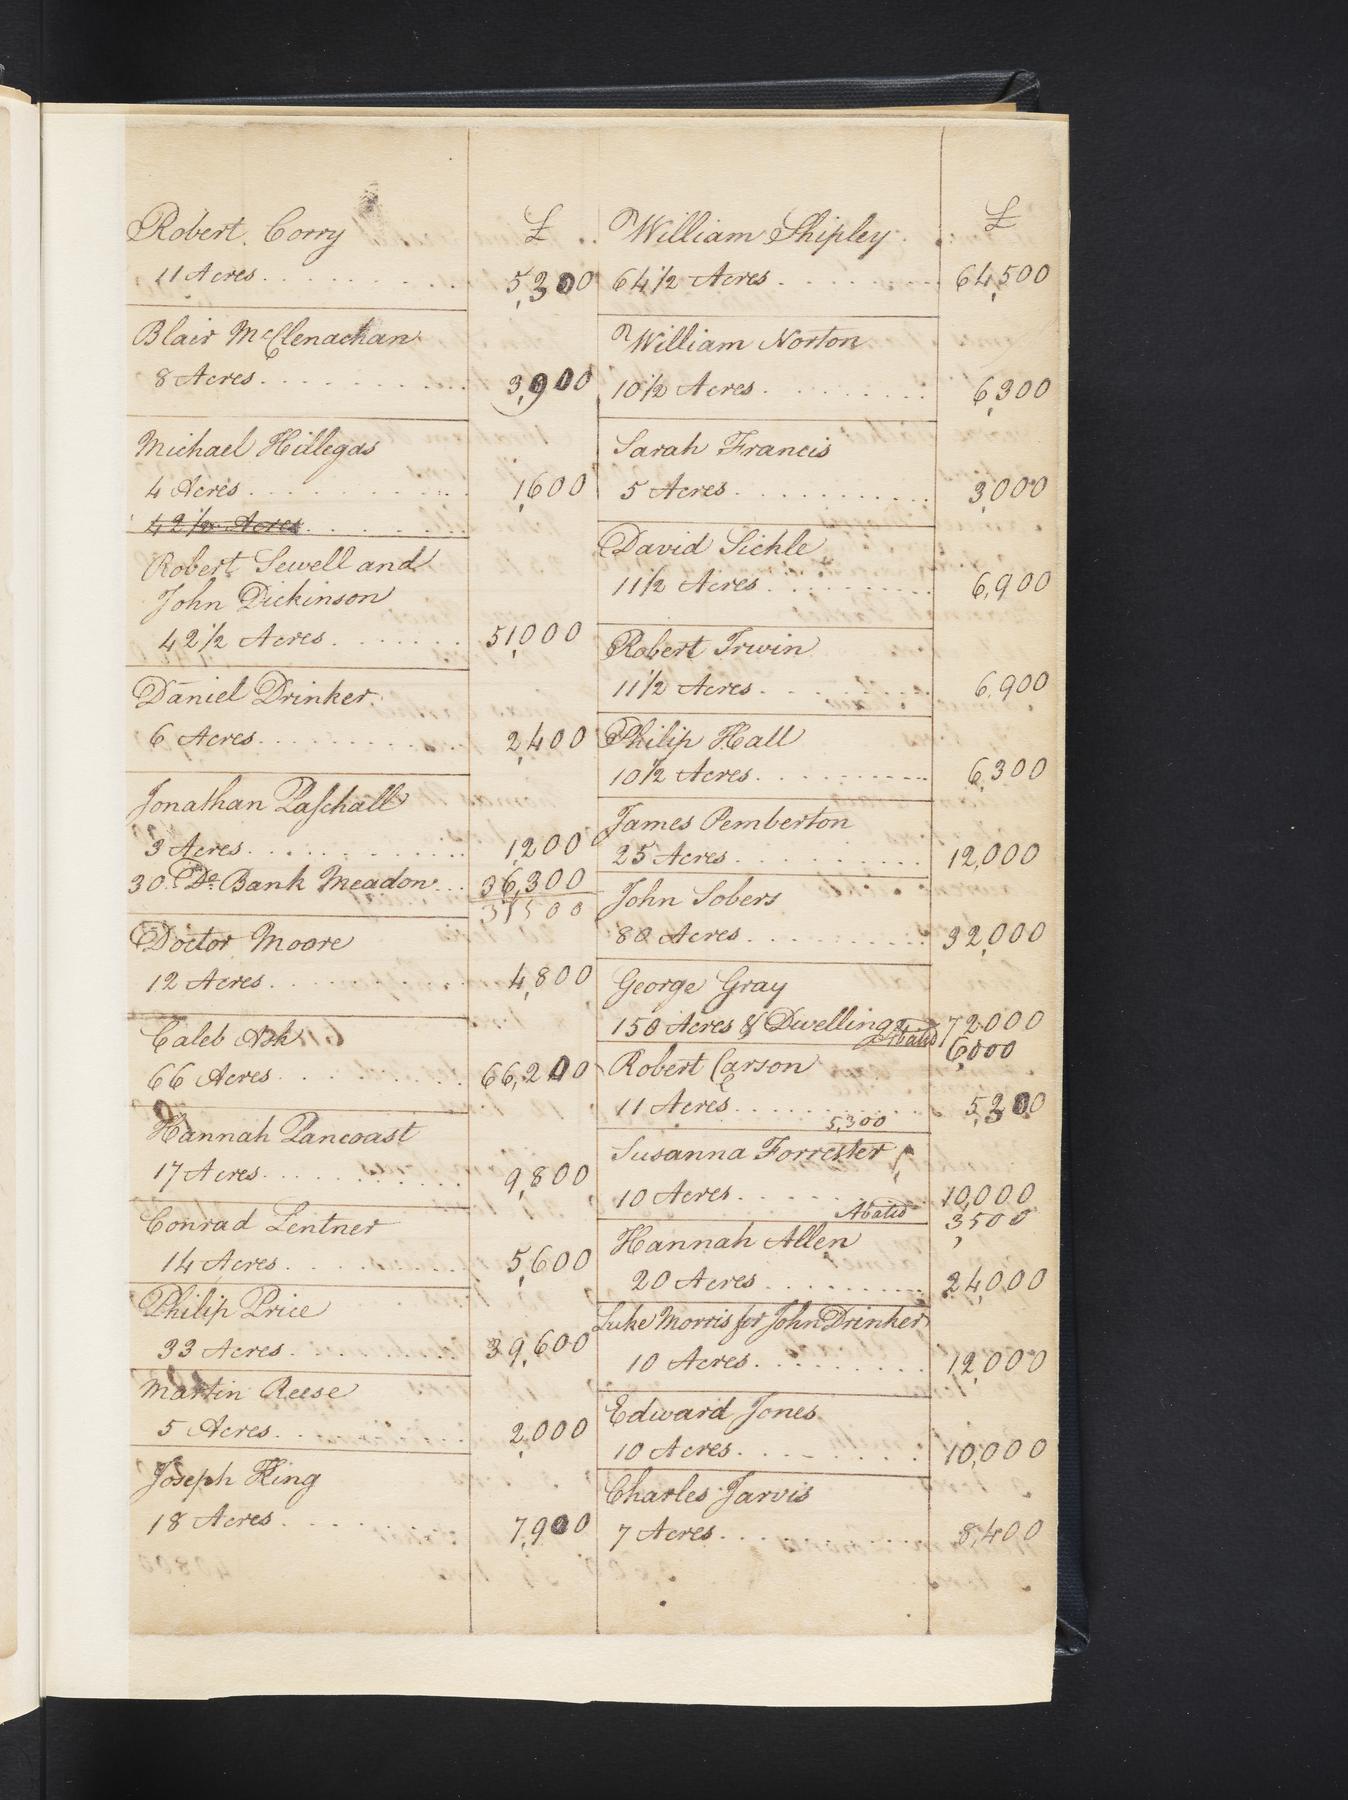 Robert Corry £
11 Acres 5,300
Blair McClenachan
8 Acres 3,900
Michael Hillegas
4 Acres 1,600
42½ Acres
Robert Sewell and
John Dickinson
42½ Acres 51,000
Daniel Drinker
6 Acres 2,400
Jonathan Paschall
3 Acres 1,200
30 Do Bank Meadow 36,300
37500
Doctor Moore
12 Acres 4,800
Caleb Ash
66 Acres 66,200
Hannah Pancoast
17 Acres 9,800
Conrad Lentner
14 Acres 5,600
Philip Price
33 Acres 39,600
Martin Reese
5 Acres 2,000
Joseph King
18 Acres 7,900
William Shipley £
64½ Acres 64,500
William Norton
10½ Acres 6,300
Sarah Francis
5 Acres 3,000
David Sickle
11½ Acres 6,900
Robert Irwin
11½ Acres 6,900
Philip Hall
10½ Acres 6,300
James Pemberton
25 Acres 12,000
John Sobers
80 Acres 32,000
George Gray
150 Acres & Dwelling 72000
Abated 6,000
Robert Carson
11 Acres 5,300
5,300
Susanna Forrester
10 Acres 10,000
Abated 3,500
Hannah Allen
20 Acres 24,000
Luke Morris for John Drinker
10 Acres 12,000
Edward Jones
10 Acres 10,000
Charles Jarvis
7 Acres 8,400